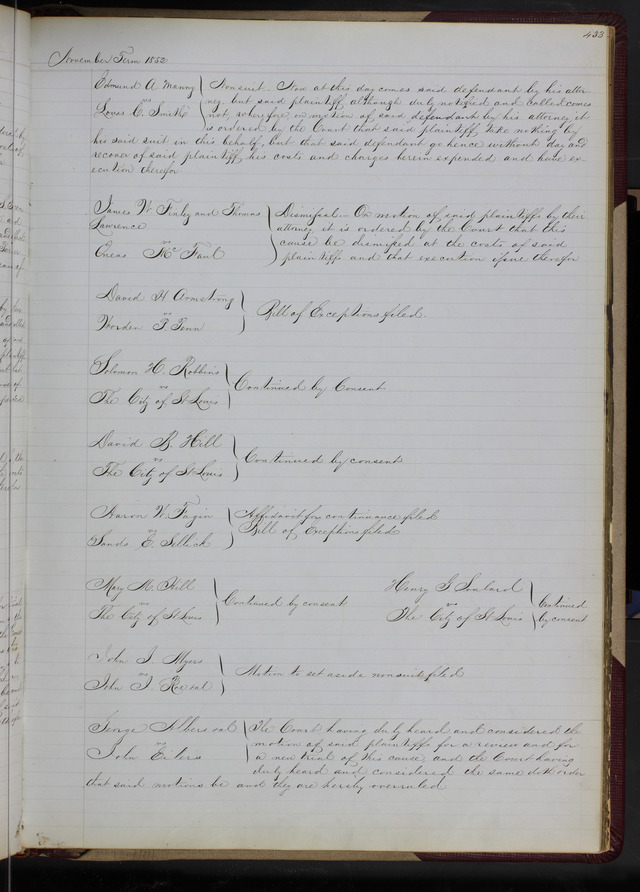 433
November Term 1852
Edmund A Manny
vs
Louis C. Smith
Nonsuit — Now at this day comes said defendant by his attor-
ney but said plaintiff, although duly notified and called comes
not, wherefore, on motion of said defendant by his attorney, it
is ordered by the Court that said plaintiff take nothing by
his said suit in this behalf, but that said defendant go hence without day and
recover of said plaintiff his costs and charges herein expended and have ex-
ecution therefor
James W Finley and Thomas
Lawrence
vs
Oneas McFaul
Dismissal — On motion of said plaintiffs by their
attorney it is ordered by the Court that this
cause be dismissed at the costs of said
plaintiffs and that execution issue therefor
David H Armstrong
vs
Worden P Penn
Bill of Exceptions filed.
Solomon H. Robbins
vs
The City of St Louis
Continued by Consent
David B. Hill
vs
The City of St Louis
Continued by consent
Aaron W. Fagin
vs
Sands E. Sellick
Affidavit for continuance filed
Bill of Exceptions filed
Mary M. Hill
vs
The City of St Louis
Continued by consent
Henry G Soulard
vs
The City of St Louis
Continued
by consent
John J. Myers
vs
John J. Roe et al
Motion to set aside nonsuit filed
George Albers et al
vs
John Eilers
The Court having duly heard and considered the
motion of said plaintiffs for a review and for
a new trial of this cause, and the Court having
duly heard and considered the same doth order
that said motions be and they are hereby overruled